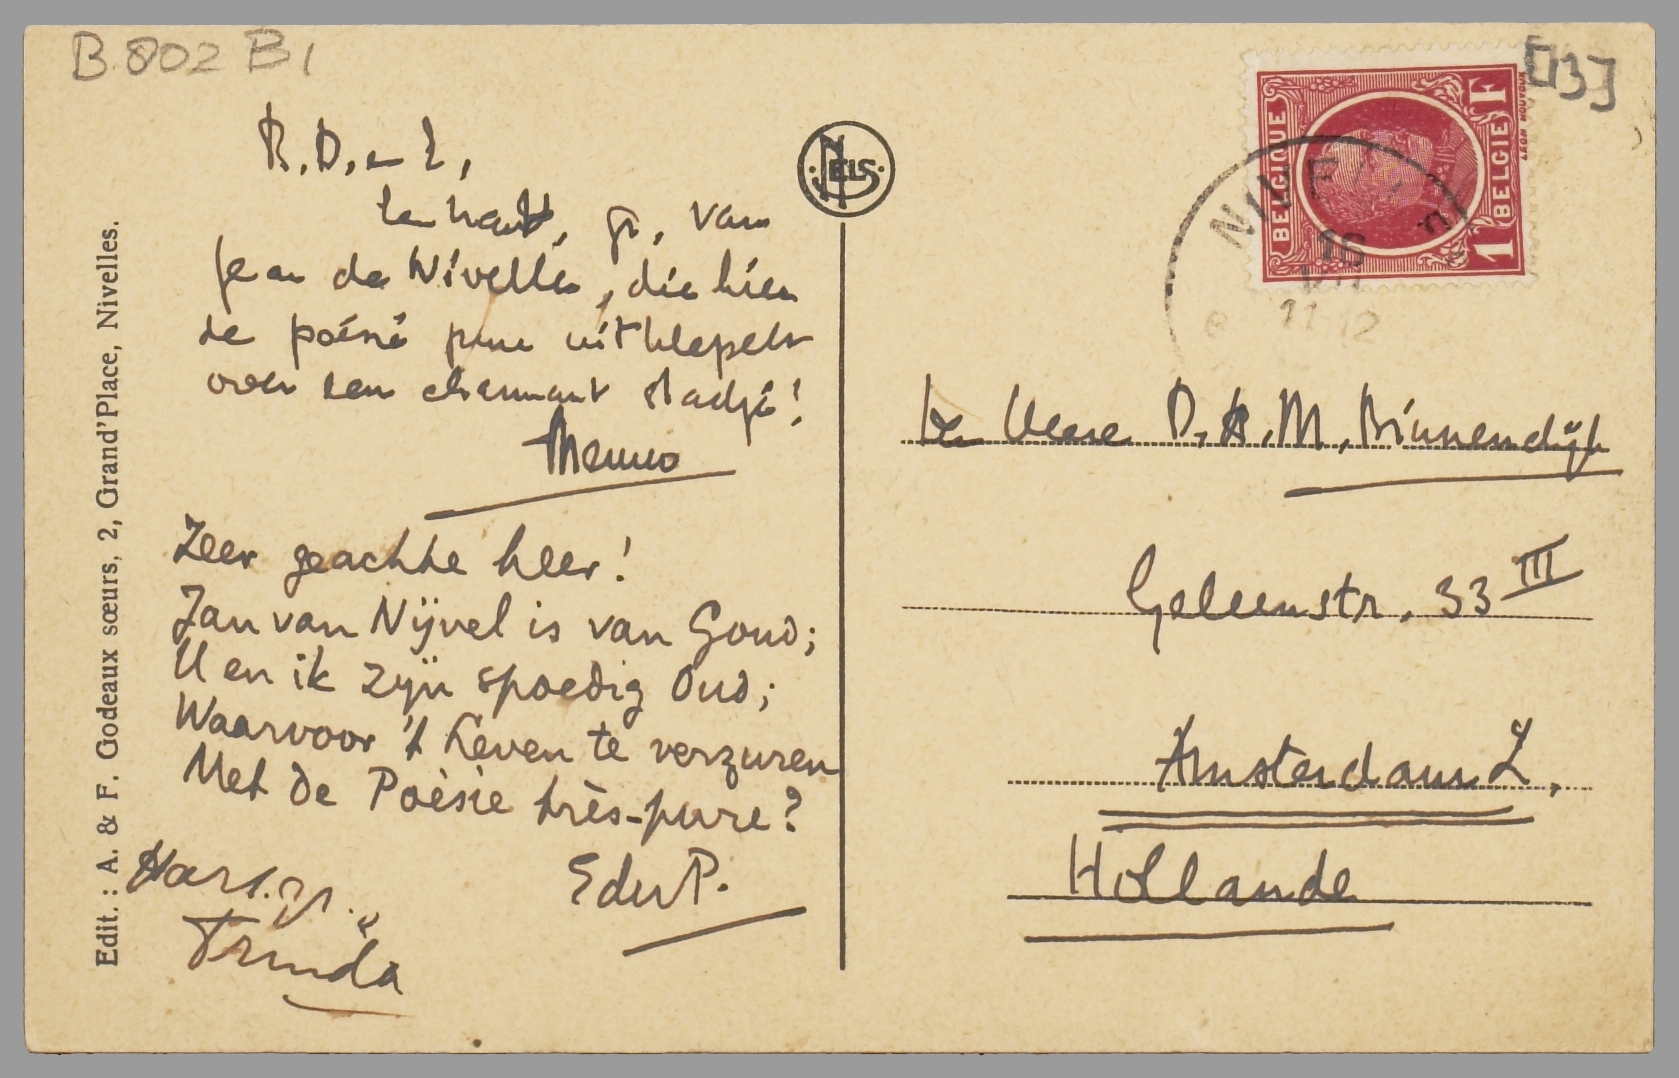 B 802 B1
[13]
B. D. en L,
een hart. gr. van
Jean de Nivelles, die hier
de poésie pure uithlepelt
over een charmant stadje!
Menno
Zeer geachte heer!
Jan van Nijvel is van Goud;
U en ik zijn spoedig Oud;
Waarvoor 't Leven te verzuren
Met de Poèsie très-pure?
EduP.
Hart. gr.
Truida
Edit. : A. & F. Godeaux sœurs, 2, Grand'Place, Nivelles.
NELS
BELGIQUE
1 BELGIE F
NIVE
16
11-12
D. A. M. Binnendijk
Geleenstr. 33 III
Amsterdam Z,
Hollande